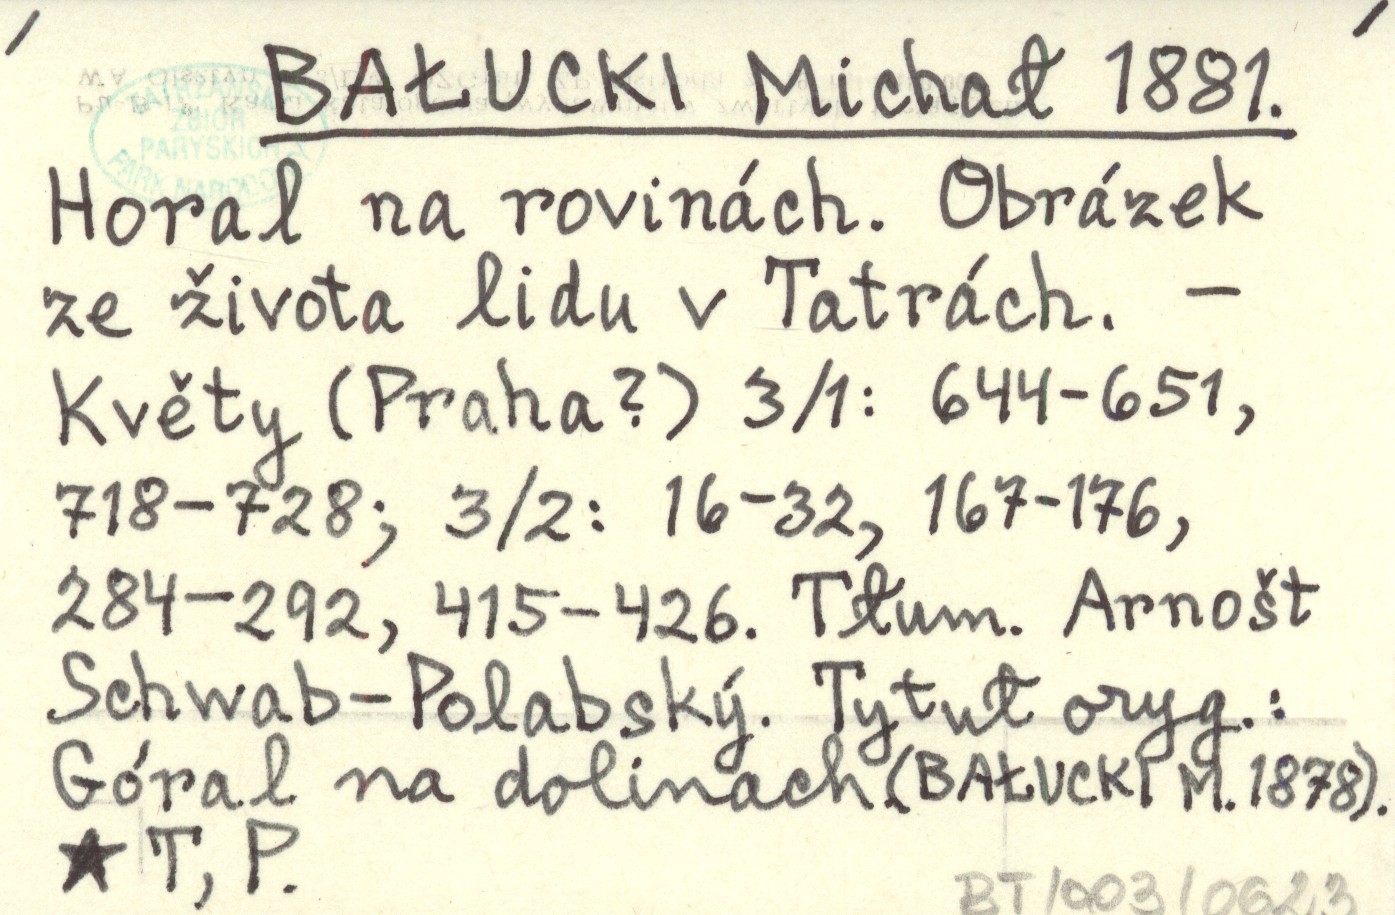 BAŁUCKI Michał 1881.
Horal na rovinách. Obrázek
ze života lidu v Tatrách. –
Květy (Praha?) 3/1: 644-651,
718-728; 3/2: 16-32, 167-176,
284-292, 415-426. Tłum. Arnošt
Schwab-Polabský. Tytuł oryg.:
Góral na dolinach (BAŁUCKI M. 1878).
★ T, P.
BT/003/062,3
ZBIÓR
PARYSKICH
PARK NARODOWY